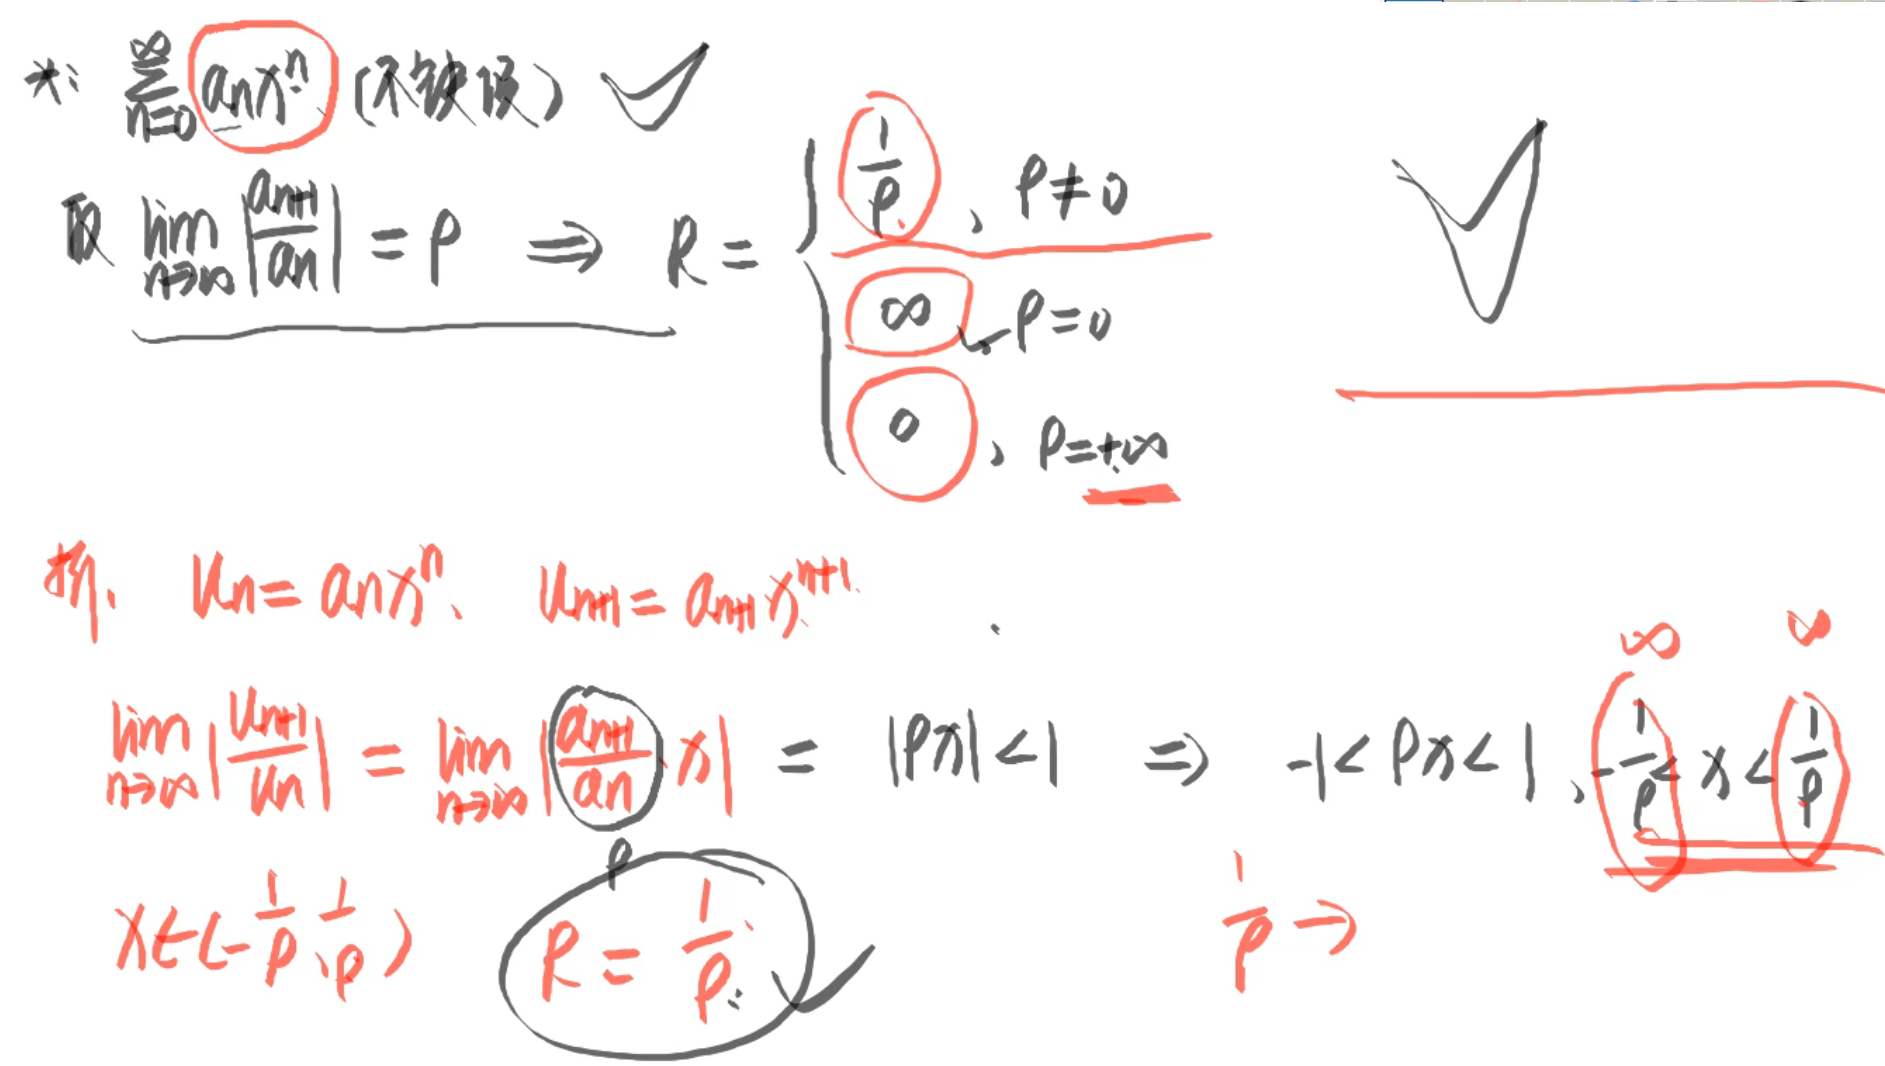 求: ∑_{n=0}^{∞} a_n x^n (不缺项)
取 lim_{n→∞} |a_{n+1}/a_n| = ρ ⇒ R = { 1/ρ, ρ≠0
∞, ρ=0
0, ρ=+∞
析. u_n = a_n x^n. u_{n+1} = a_{n+1} x^{n+1}.
∞ ∞
lim_{n→∞} |u_{n+1}/u_n| = lim_{n→∞} |a_{n+1}/a_n · x| = |ρx| < 1 ⇒ -1 < ρx < 1, -1/ρ < x < 1/ρ
ρ
x∈(-1/ρ, 1/ρ) R = 1/ρ. 1/ρ →